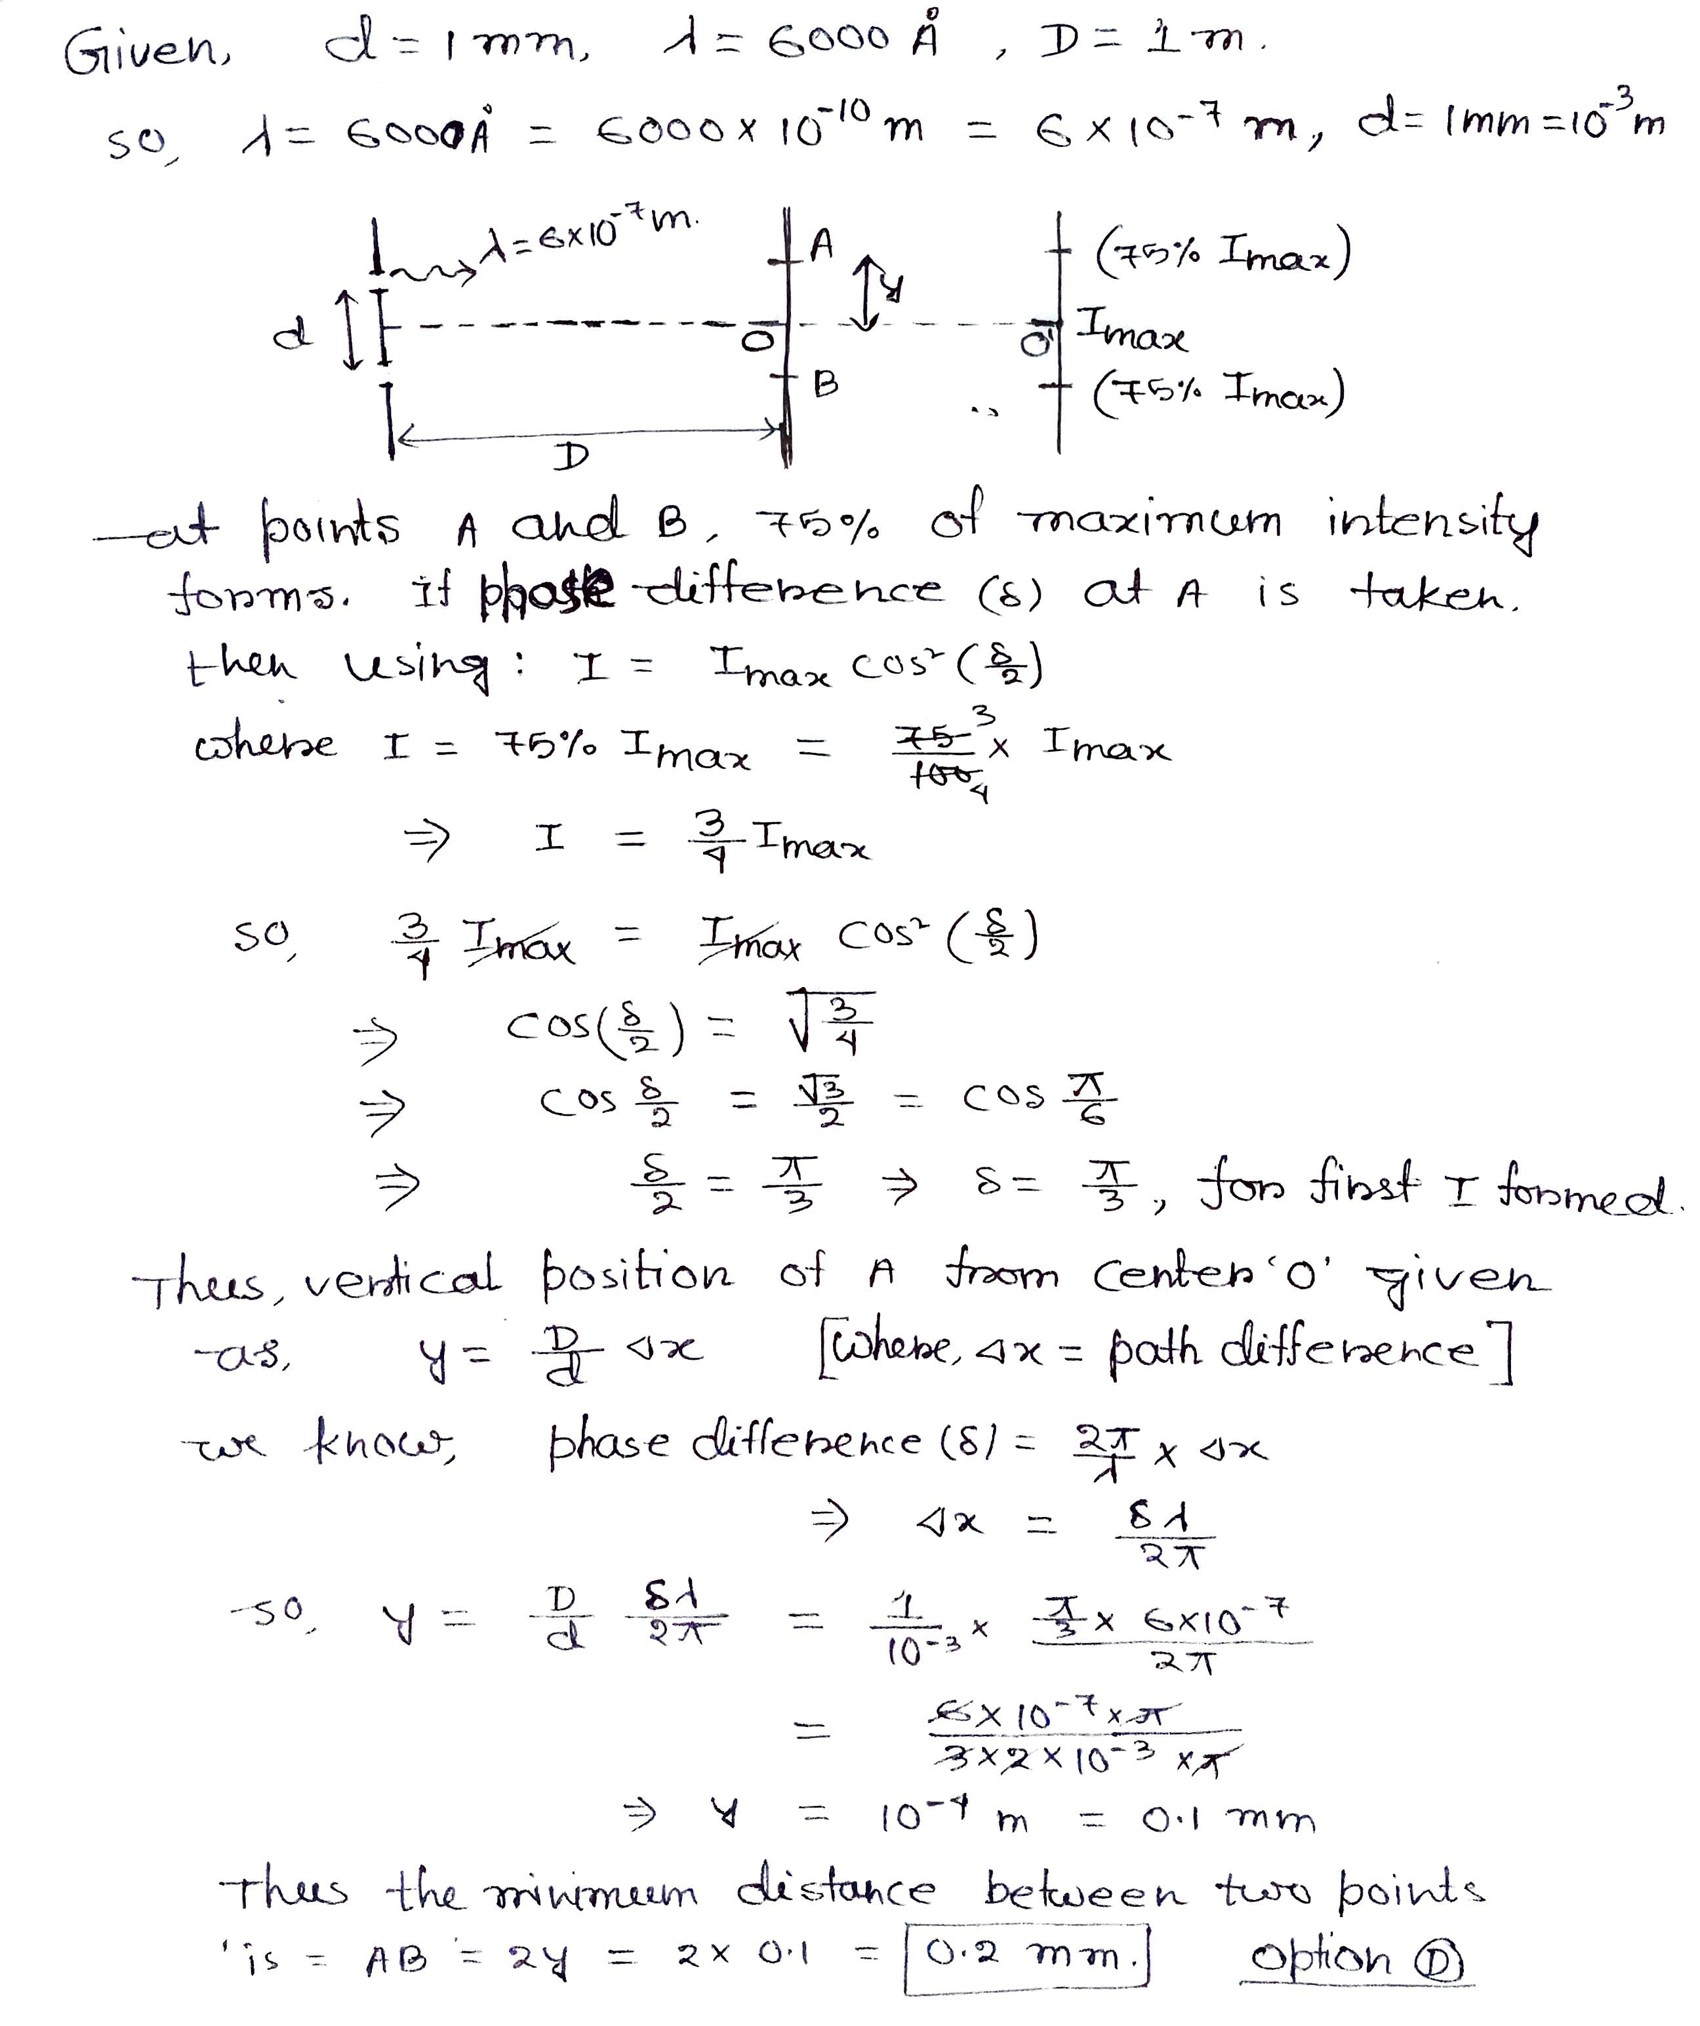 Given, d = 1 mm, λ = 6000 Å, D = 1 m.
so, λ = 6000Å = 6000 × 10⁻¹⁰ m = 6 × 10⁻⁷ m, d = 1mm = 10⁻³ m
λ = 6×10⁻⁷ m.
A
(75% Imax)
y
d
O
O'
Imax
B
(75% Imax)
D
at points A and B, 75% of maximum intensity
forms. if phase difference (δ) at A is taken.
then using: I = Imax cos² (δ/2)
where I = 75% Imax = 75/100 3/4 × Imax
⇒ I = 3/4 Imax
so, 3/4 Imax = Imax cos² (δ/2)
⇒ cos(δ/2) = √(3/4)
⇒ cos δ/2 = √3/2 = cos π/6
⇒ δ/2 = π/3 ⇒ δ = π/3, for first I formed.
Thus, vertical position of A from center 'O' given
as, y = D/d Δx [where, Δx = path difference]
we know, phase difference (δ) = 2π/λ × Δx
⇒ Δx = δλ/2π
so, y = D/d δλ/2π = 1/10⁻³ × (π/3 × 6×10⁻⁷)/2π
= (6×10⁻⁷×π)/(3×2×10⁻³×π)
⇒ y = 10⁻⁴ m = 0.1 mm
Thus the minimum distance between two points
is = AB = 2y = 2 × 0.1 = 0.2 mm. option D